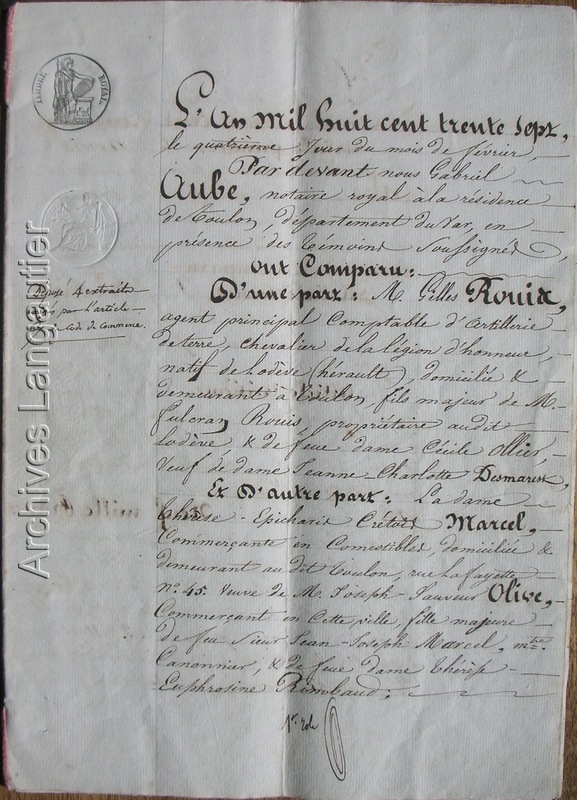 TIMBRE ROYAL
L'An Mil huit cent trente Sept,
le quatrième Jour du mois de février,
Par devant nous Gabriel
Aube, notaire royal à la résidence
de Toulon, département du Var, en
présence des témoins soussignés,
ont Comparu:
D'une part: M. Gilles Rouis,
agent principal Comptable d'artillerie
de terre, chevalier de la légion d'honneur,
natif de Lodève (hérault), domicilié &
demeurant à Toulon, fils majeur de M.
Fulcran Rouis, propriétaire audit
Lodève, & de feue dame Cécile Ollier,
Veuf de dame Jeanne-Charlotte Desmarest,
Et D'autre part: La dame
Thérèse-Epicharis Marcel,
Commerçante en Comestibles, domiciliée &
demeurant au dit Toulon, rue Lafayette
n.° 45. Veuve de M. Joseph Sauveur Olive,
Commerçant en Cette ville, fille majeure
de feu Sieur Jean-Joseph Marcel, m.tre
Canonnier, & de feue Dame Thérèse
Euphrosine Rimbaud;
Déposé 4 extraits
par l'article
Code de Commerce.
1er role
Archives Langautier